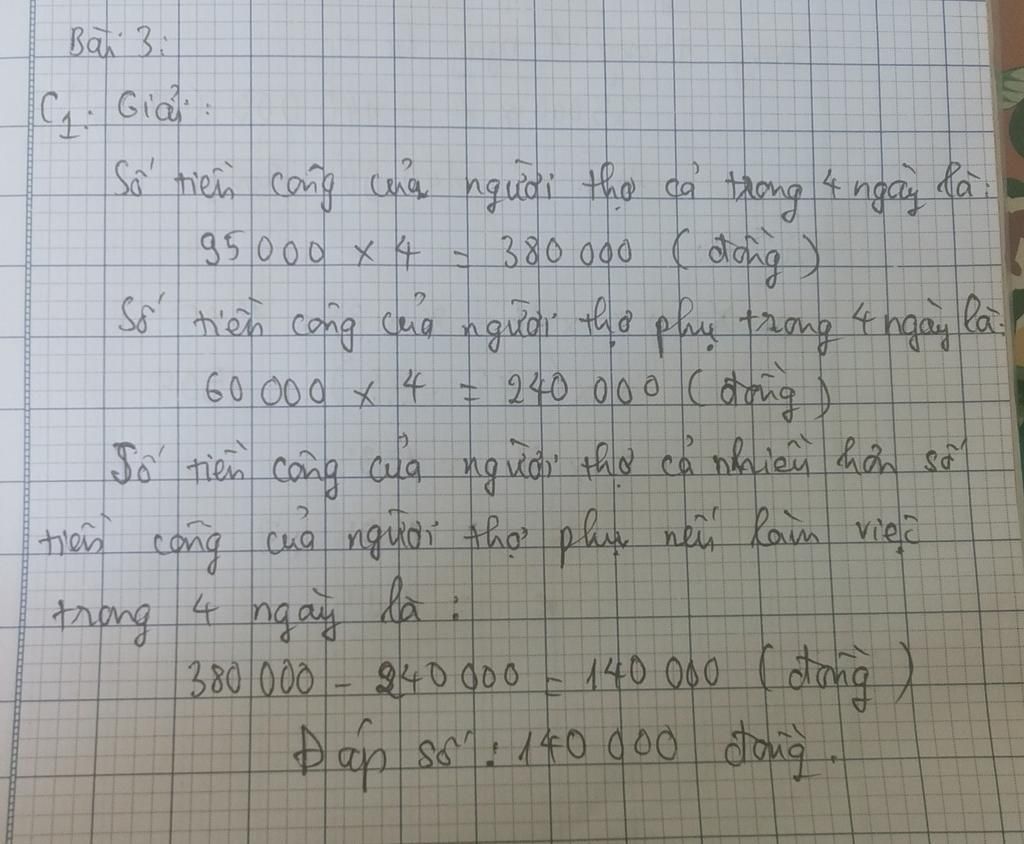 Bài 3:
C1: Giải:
Số tiền công của người thợ cả trong 4 ngày là:
95 000 × 4 = 380 000 ( đồng )
Số tiền công của người thợ phụ trong 4 ngày là:
60 000 × 4 = 240 000 ( đồng )
Số tiền công của người thợ cả nhiều hơn số
tiền công của người thợ phụ nếu làm việc
trong 4 ngày là :
380 000 - 240 000 = 140 000 ( đồng )
Đáp số : 140 000 đồng.